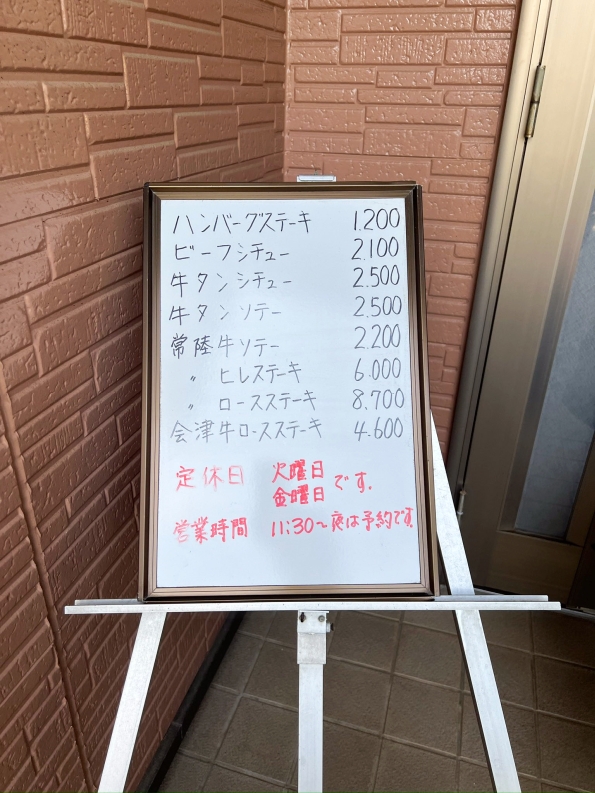 ハンバーグステーキ 1.200
ビーフシチュー 2.100
牛タンシチュー 2.500
牛タンソテー 2.500
常陸牛ソテー 2.200
〃 ヒレステーキ 6.000
〃 ロースステーキ 8.700
会津牛ロースステーキ 4.600
定休日 火曜日
金曜日 です.
営業時間 11:30~夜は予約です